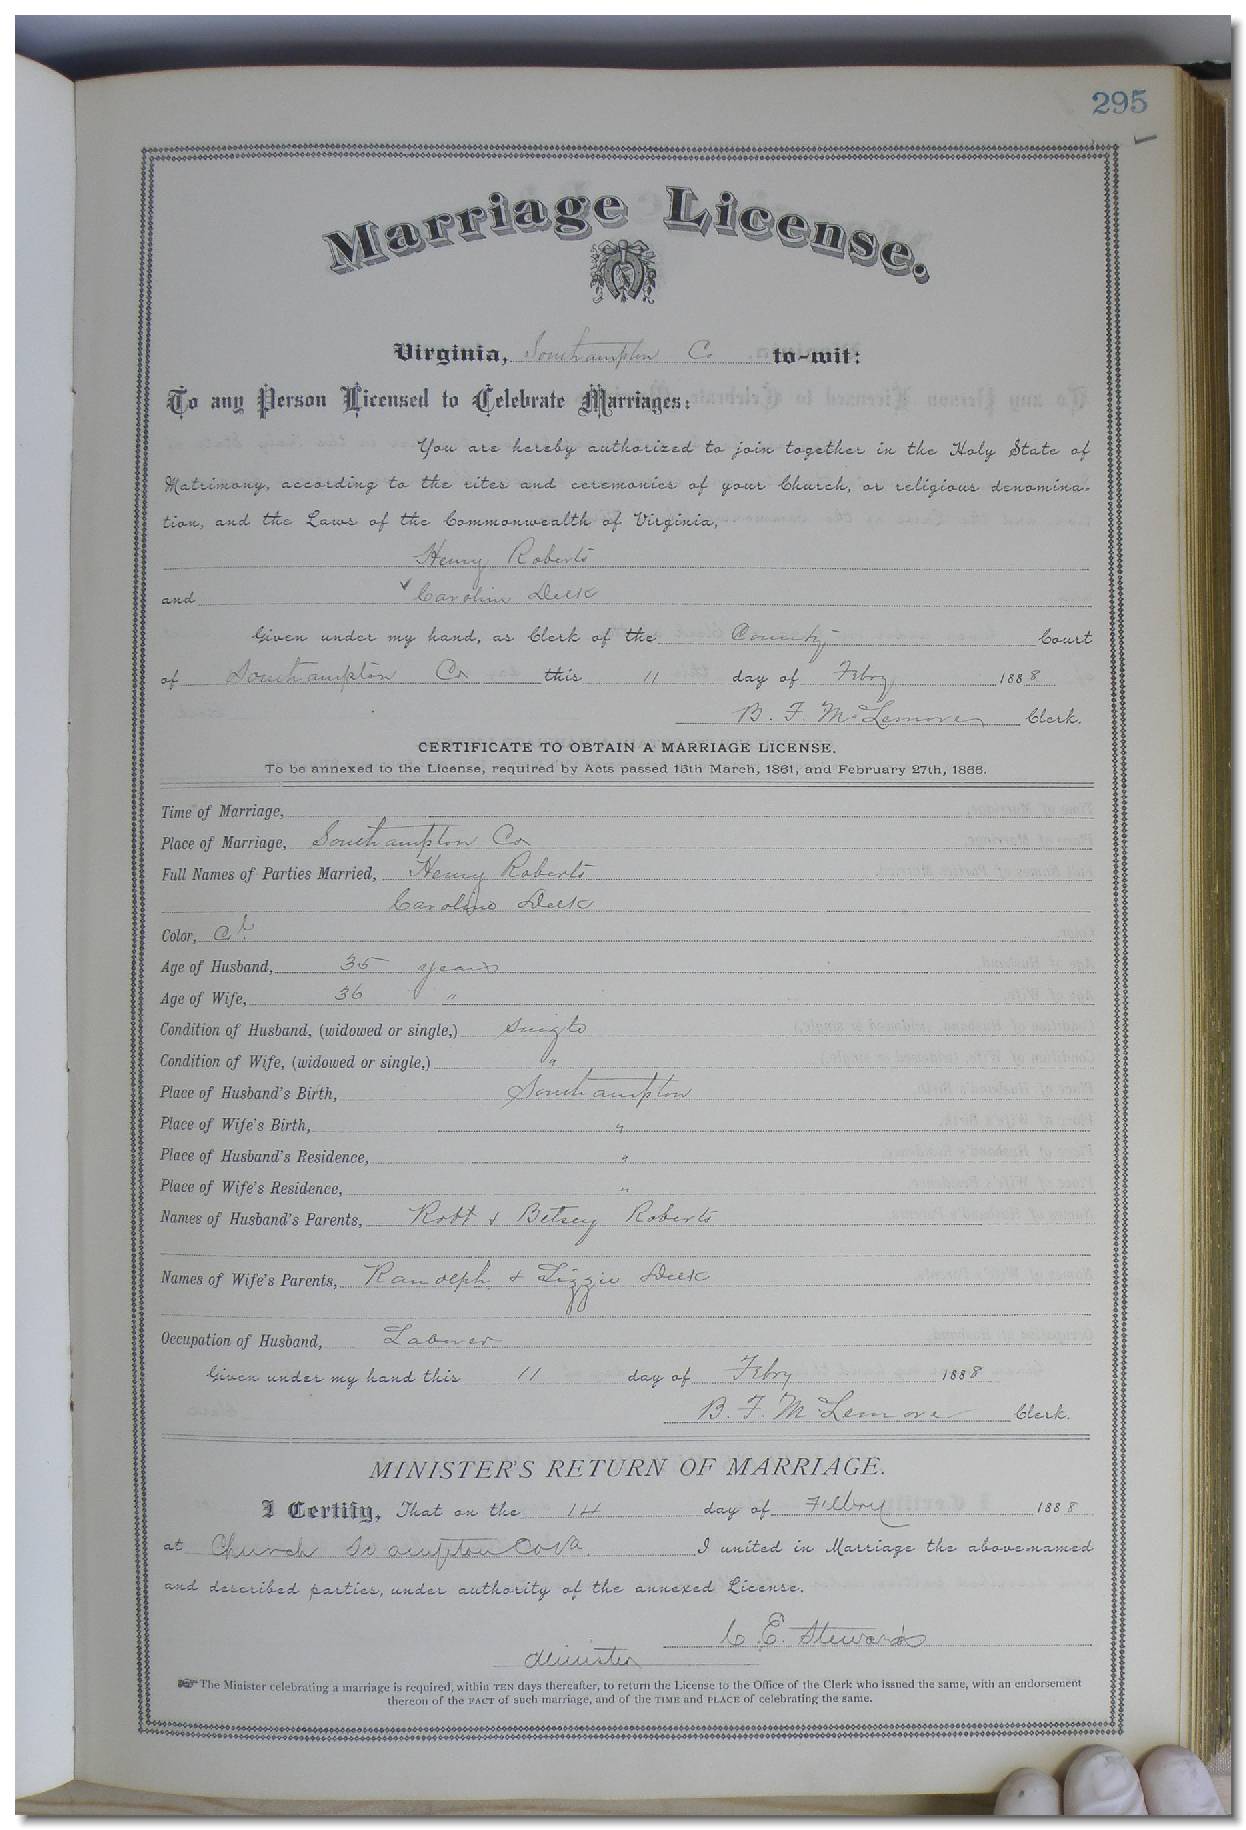 295
Marriage License.
Virginia, Southampton Co to-wit:
To any Person Licensed to Celebrate Marriages:
You are hereby authorized to join together in the Holy State of
Matrimony, according to the rites and ceremonies of your Church, or religious denomina-
tion, and the Laws of the Commonwealth of Virginia,
Henry Roberts
and Caroline Deek
Given under my hand, as Clerk of the County Court
of Southampton Co this 11 day of Feby 1888
B. F. McLemore Clerk.
CERTIFICATE TO OBTAIN A MARRIAGE LICENSE.
To be annexed to the License, required by Acts passed 15th March, 1861, and February 27th, 1866.
Time of Marriage,
Place of Marriage, Southampton Co
Full Names of Parties Married, Henry Roberts
Caroline Deek
Color,
Age of Husband, 35 years
Age of Wife, 36 "
Condition of Husband, (widowed or single,) Single
Condition of Wife, (widowed or single,) "
Place of Husband's Birth, Southampton
Place of Wife's Birth, "
Place of Husband's Residence, "
Place of Wife's Residence, "
Names of Husband's Parents, Robt & Betsey Roberts
Names of Wife's Parents, Randolph & Lizzie Deek
Occupation of Husband, Laborer
Given under my hand this 11 day of Feby 1888
B. F. McLemore Clerk.
MINISTER'S RETURN OF MARRIAGE.
I Certify, That on the 14 day of 1888
at Church Co Va. I united in Marriage the above-named
and described parties, under authority of the annexed License.
C. E. Steward
Minister
The Minister celebrating a marriage is required, within TEN days thereafter, to return the License to the Office of the Clerk who issued the same, with an endorsement
thereon of the FACT of such marriage, and of the TIME and PLACE of celebrating the same.